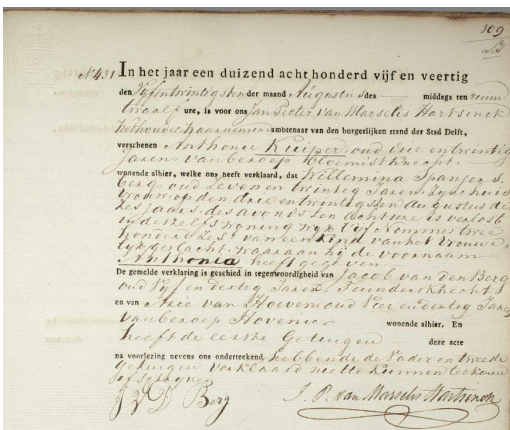 109
N° 431 In het jaar een duizend acht honderd vijf en veertig
den Vyfentwintigsten der maand Augustus des middags ten ruim
twaalf ure, is voor ons Jan Pieter van Marselis Hartsinck
Wethouder waarnemen ambtenaar van den burgerlijken stand der Stad Delft,
verschenen Anthonie Kuiper oud Drie en twintig
Jaren van beroep Bloemist Knecht
wonende alhier, welke ons heeft verklaard, dat Willemina Spanjers
berg oud Zeven en twintig Jaren Zyn huis
vrouw op den drie en twintigsten Augustus de
zes jaars des avonds ten acht ure is verlost
in dezelfs woning wyk Vyf Nommer twee
honderd Zes van een Kind van het Vrouwe
lyk geslacht waaraan hij de voornaam
Anthonia heeft gegeven
De gemelde verklaring is geschied in tegenwoordigheid van Jacob van den Berg
oud Vyf en dertig Jaren Knecht
en van Arie van Hoeven oud Vier en dertig Jaren
van beroep Hovenier wonende alhier. En
heeft de eerste Getuigen deze acte
na voorlezing nevens ons onderteekend hebbende de Vader en tweede
getuigen verklaard niet te kunnen teekenen
of schryven
J V D Berg J. P. van Marselis Hartsinck